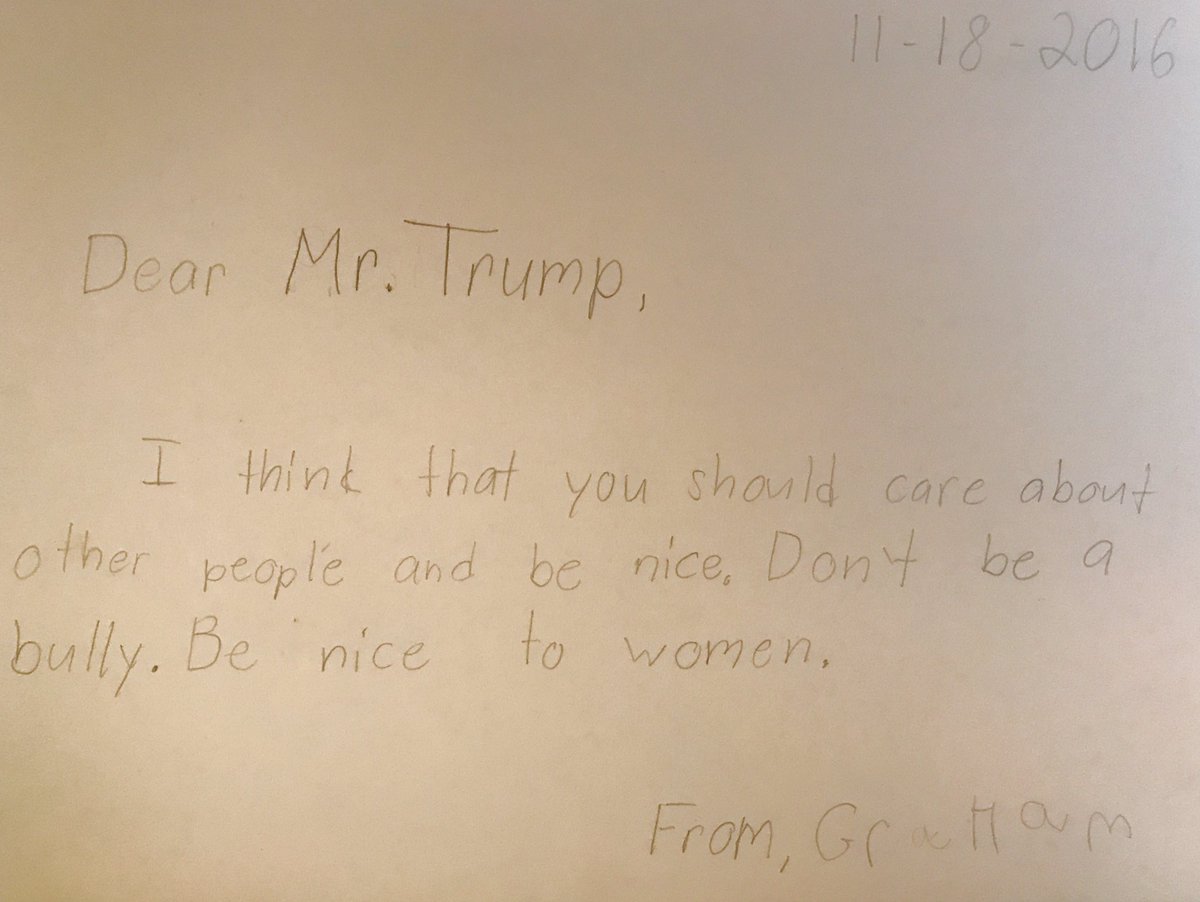 11-18-2016
Dear Mr. Trump,
I think that you should care about
other people and be nice. Don't be a
bully. Be nice to women.
From, GraHam